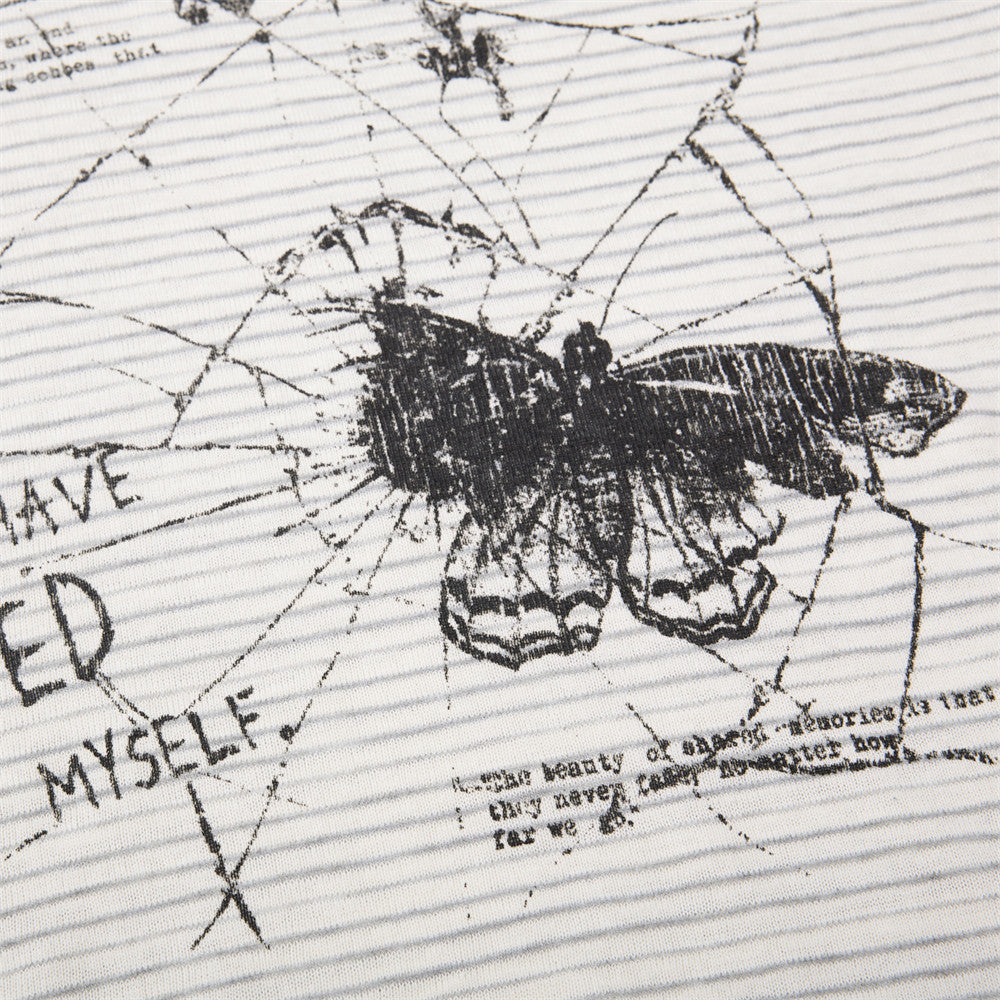 an end
, where the
echoes that
HAVE
ED
MYSELF.
the beauty of shared memories is that
they never fade, no matter how
far we go.